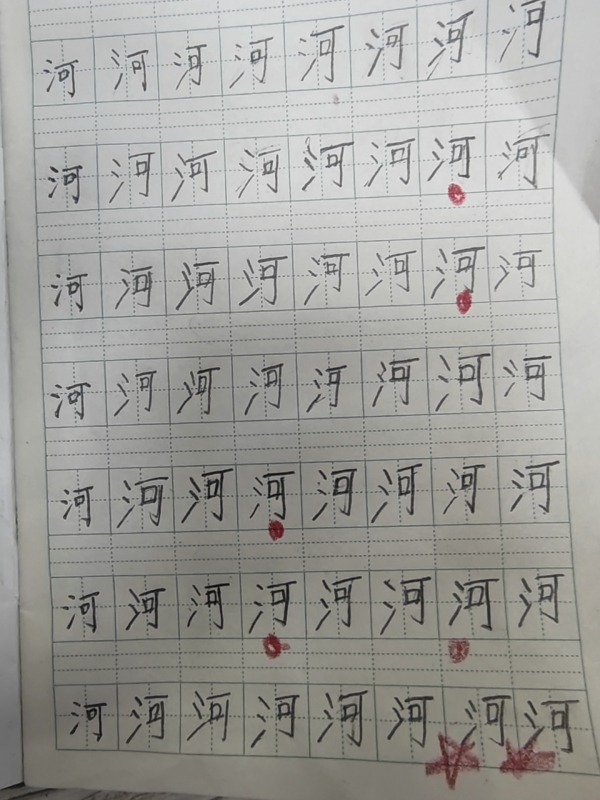 河 河 河 河 河 河 河 河
河 河 河 河 河 河 河 河
河 河 河 河 河 河 河 河
河 河 河 河 河 河 河 河
河 河 河 河 河 河 河 河
河 河 河 河 河 河 河 河
河 河 河 河 河 河 河 河